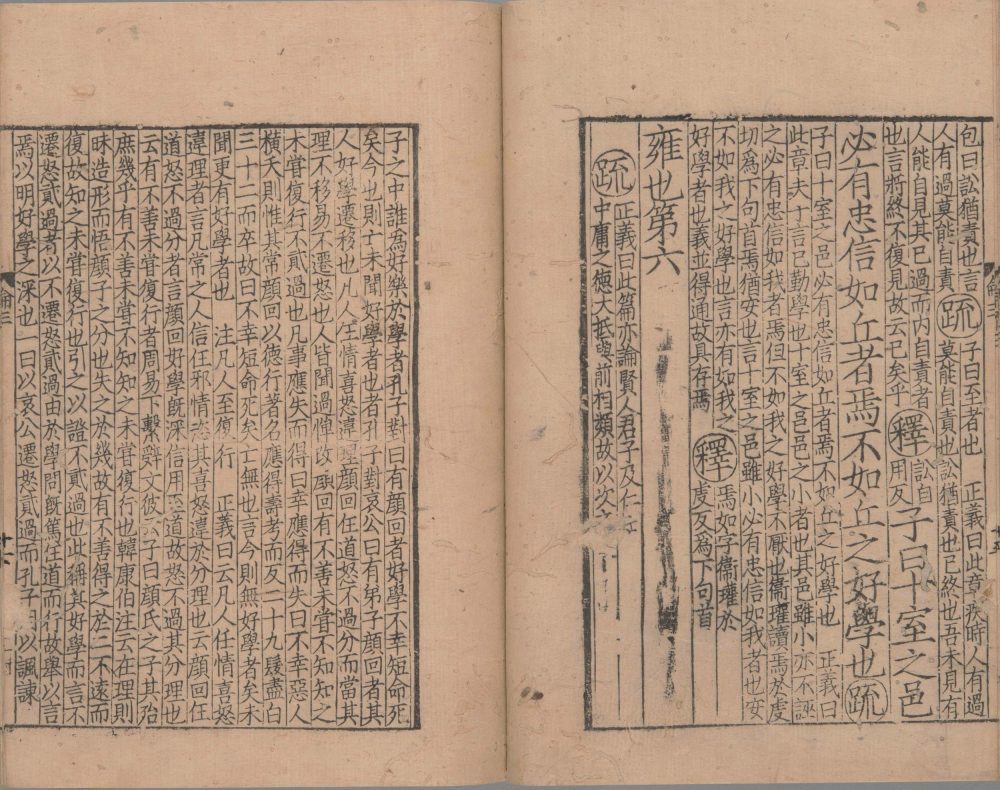 包曰訟猶責也言
人有過莫能自責
疏
子曰至者也　正義曰此章疾時人有過
莫能自責也訟猶責也已終也吾未見有
人能自見其已過而內自責者
也言將終不復見故云已矣乎
釋
訟自
用反
子曰十室之邑
必有忠信如丘者焉不如丘之好學也疏
子曰十室之邑必有忠信如丘者焉不如丘之好學也　正義曰
此章夫子言已勤學也十室之邑邑之小者也其邑雖小亦不誣
之必有忠信如我者焉但不如我之好學不厭也衞瓘讀焉於虔
切為下句首焉猶安也言十室之邑雖小必有忠信如我者也安
不如我之好學也言亦有如我之
好學者也義並得通故具存焉
釋
焉如字衞瓘於
虔反為下句首
雍也第六
疏
正義曰此篇亦論賢人君子及仁
中庸之德大抵與前相類故以次
子之中誰為好樂於學者孔子對曰有顏回者好學不幸短命死
矣今也則亡未聞好學者也者孔子對哀公曰有弟子顏回者其
人好學遷移也凡人任情喜怒違顏回任道怒不過分而當其
理不移易不遷怒也人皆聞過憚改顏回有不善未嘗不知知之
未嘗復行不貳過也凡事應失而得曰幸應得而失曰不幸惡人
橫夭則惟其常顏回以德行著名應得壽考而反二十九髮盡白
三十二而卒故曰不幸短命死矣亡無也言今則無好學者矣未
聞更有好學者也　注凡人至復行　正義曰云凡人任情喜怒
違理者言凡常之人信任邪情恣其喜怒違於分理也云顏回任
道怒不過分者言顏回好學既深信用至道故怒不過其分理也
云有不善未嘗復行者周易下繫辭文彼云子曰顏氏之子其殆
庶幾乎有不善未嘗不知知之未嘗復行也韓康伯注云在理則
昧造形而悟顏子之分也失之於幾故有不善得之於二不遠而
復故知之未嘗復行也引之以證不貳過也此稱其好學而言不
遷怒貳過者以不遷怒貳過由於學問既篤任道而行故舉以言
焉以明好學之深也一曰以哀公遷怒貳過而孔子以諷諫
論三